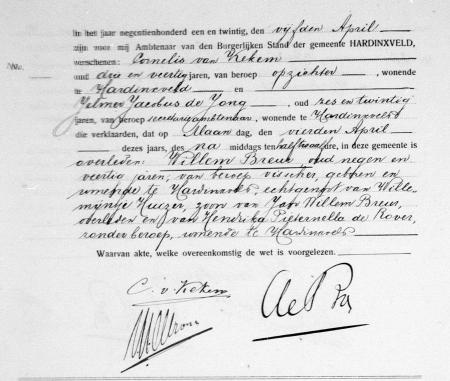 In het jaar negentienhonderd een en twintig, den vijfden April
zijn voor mij Ambtenaar van den Burgerlijken Stand der gemeente HARDINXVELD,
No.
verschenen: Cornelis van Kekem
oud drie en veertig jaren, van beroep opzichter, wonende
te Hardinxveld en
Jacobus de Jong, oud zes en twintig
jaren, van beroep wonende te Hardinxveld
die verklaarden, dat op Maandag, den vierden April
dezes jaars, des na middags ten half ure, in deze gemeente is
overleden: Willem Breur oud negen en
veertig jaren, van beroep visscher, geboren en
wonende te Hardinxveld, echtgenoot van Wille-
mijntje Huizer, zoon van Jan Willem Breur,
overleden en van Hendrika Pieternella de Rover,
zonder beroep, wonende te Hardinxveld
Waarvan akte, welke overeenkomstig de wet is voorgelezen.
C. v. Kekem